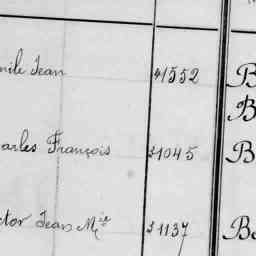 mile Jean 41552 B
B
arles François 41045 B
ctor Jean Mie 41137 Be